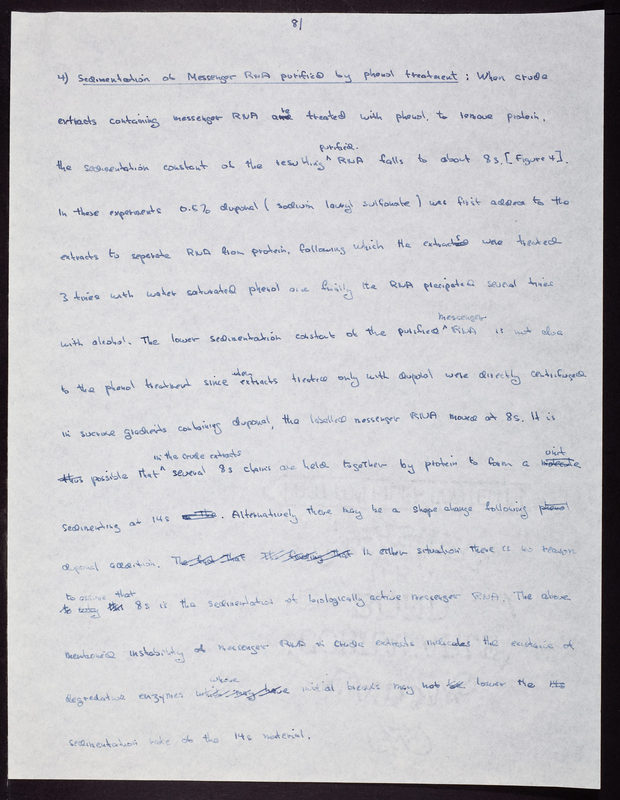 8/
4) Sedimentation of Messenger RNA purified by phenol treatment : When crude
extracts containing messenger RNA are treated with phenol, to remove protein,
purified
the sedimentation constant of the resulting ^ RNA falls to about 8s, [Figure 4].
In these experiments 0.5% duponol (sodium lauryl sulfonate) was first added to the
extracts to seperate RNA from protein, following which the extracts were treated
3 times with water saturated phenol and finally the RNA precipated several times
messenger
with alcohol. The lower sedimentation constant of the purified ^ RNA is not due
when
to the phenol treatment since extracts treated only with duponol were directly centrifuged
in sucrose gradients containing duponol, the labelled messenger RNA moved at 8s. It is
in the crude extracts unit
thus possible that ^ several 8s chains are held together by protein to form a molecule
sedimenting at 14s . Alternatively there may be a shape change following phenol
duponol addition. The fact that It In either situation there is no reason
to assume that
to 8s is the sedimentation of biologically active messenger RNA. The above
mentioned instability of messenger RNA in crude extracts indicates the existence of
whose
degradative enzymes which may have initial breaks may not be lower the 14s
sedimentation rate of the 14s material.